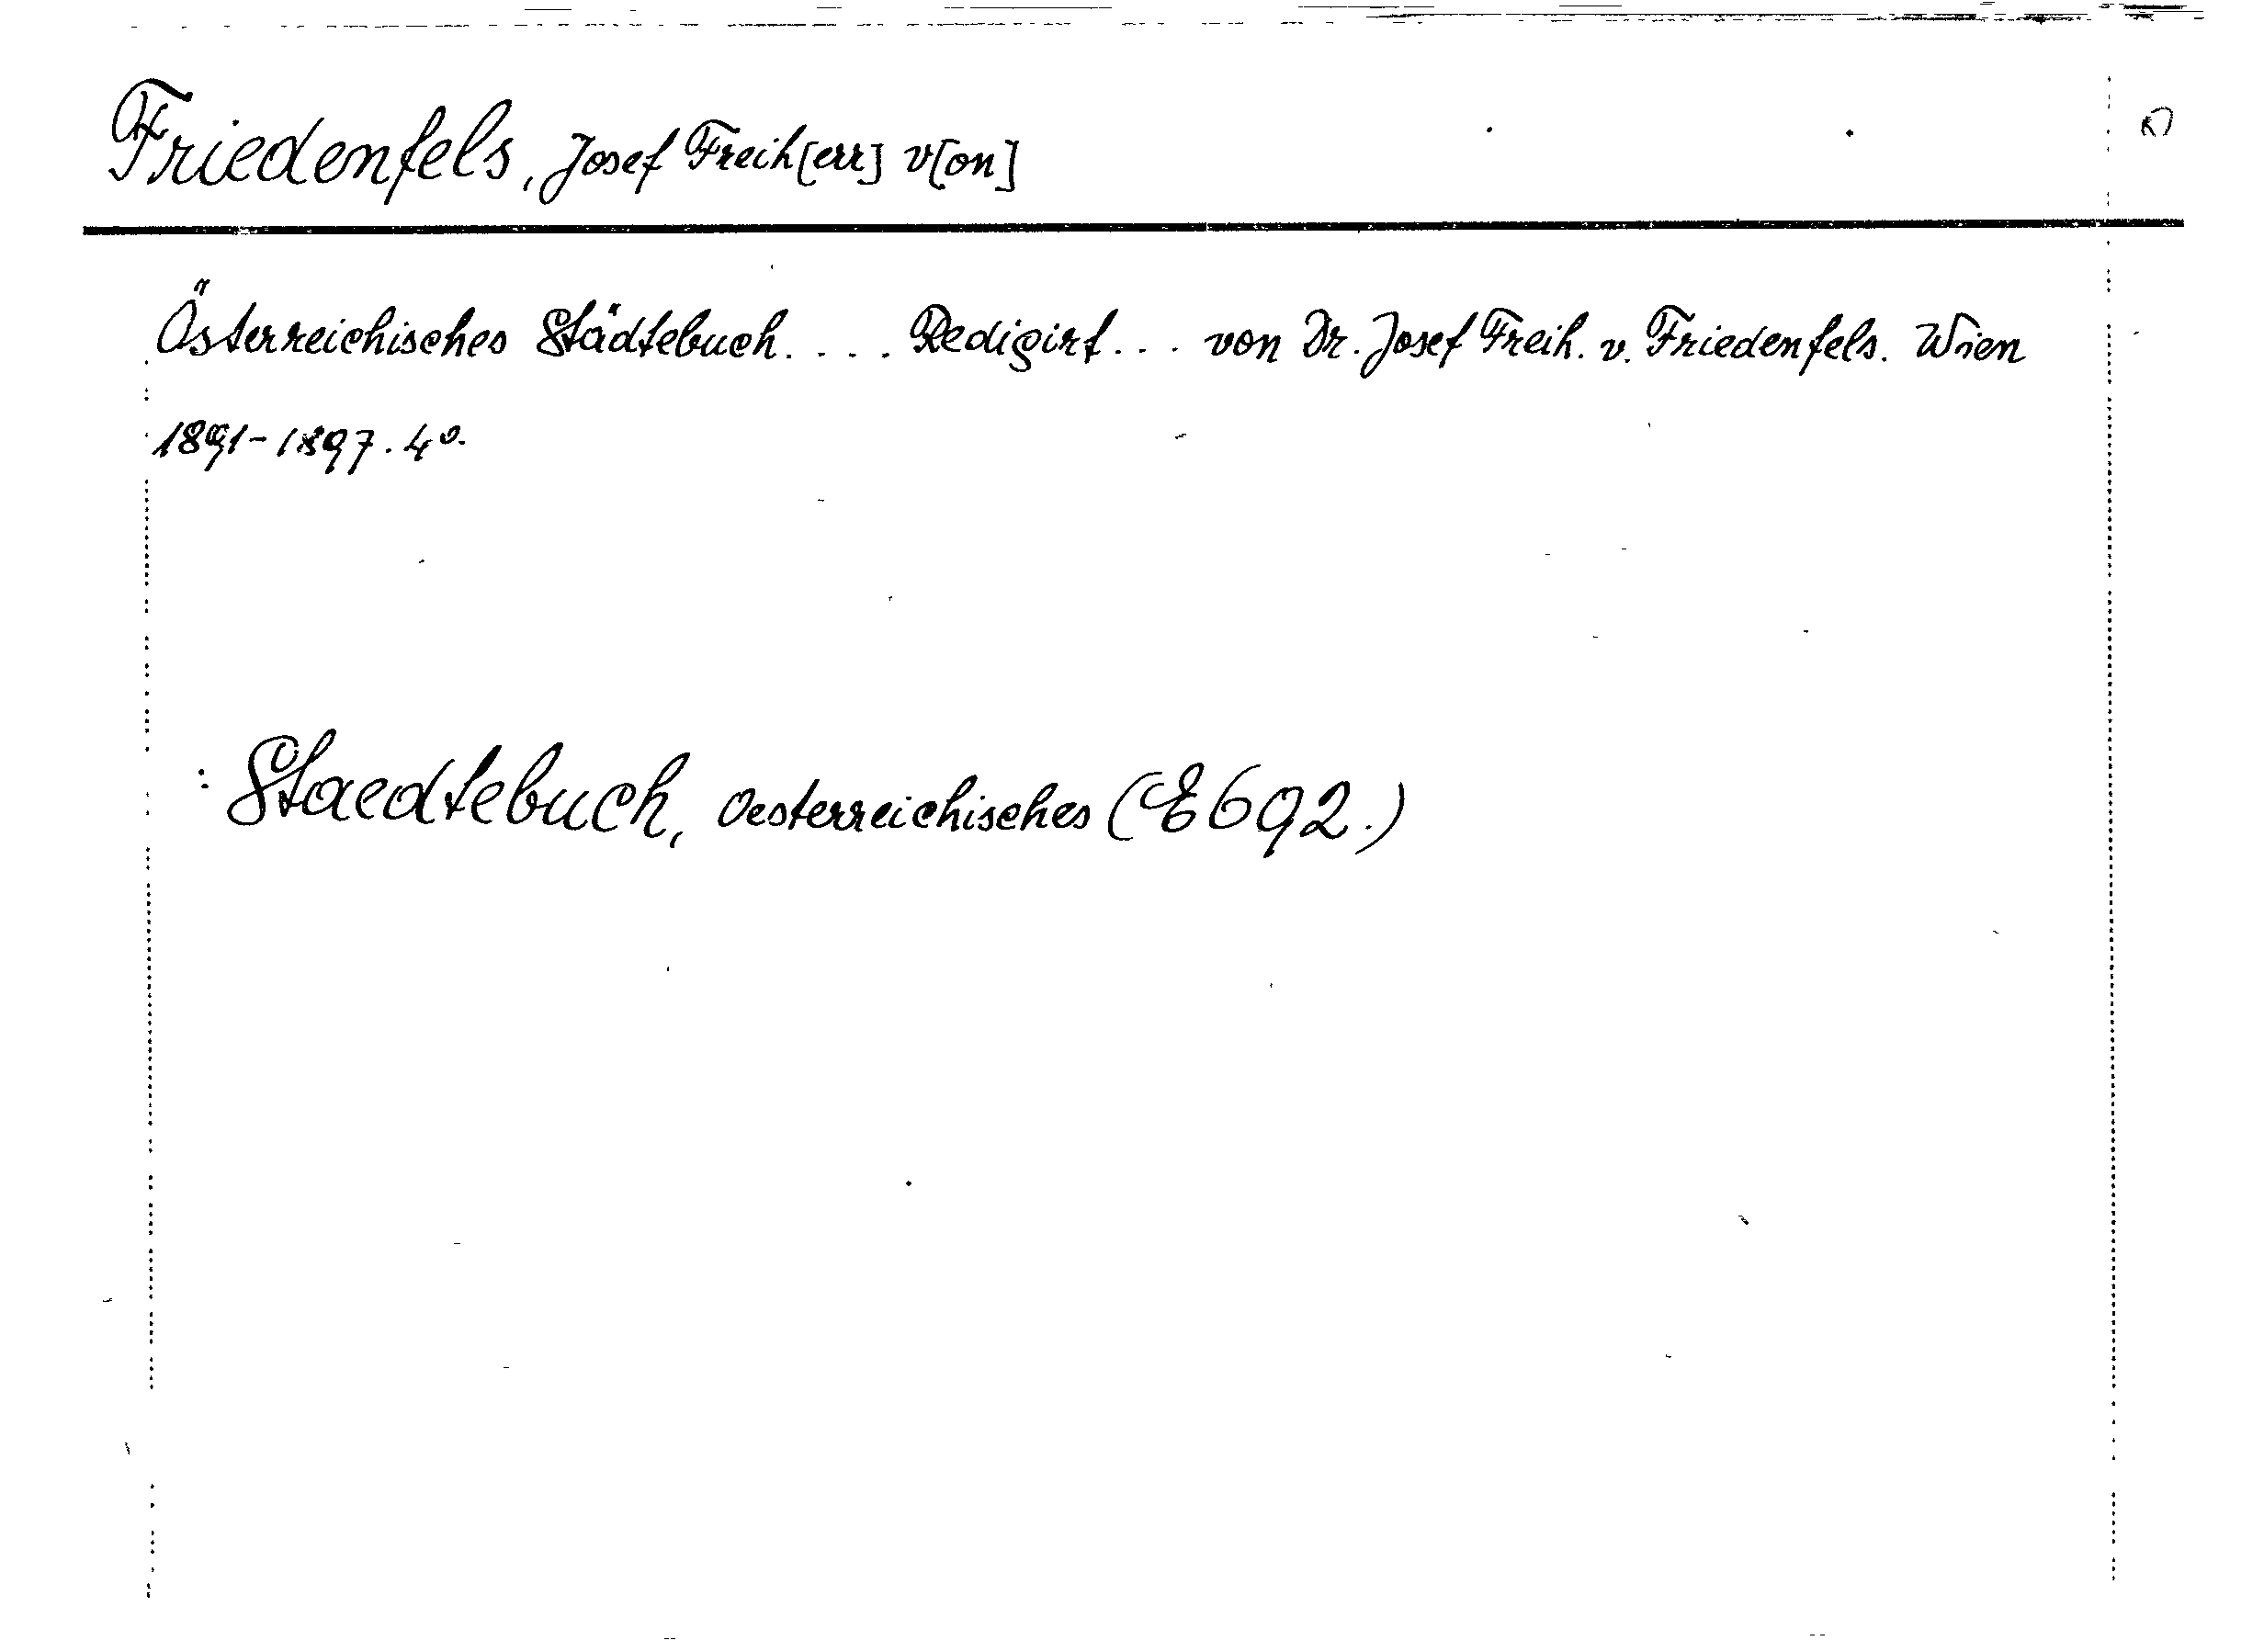 Friedenfels, Josef Freih[err] v[on]
Österreichisches Städtebuch. . . . Redigirt . . . von Dr. Josef Freih. v. Friedenfels. Wien
1891-1897. 4°.
: Staedtebuch, Oesterreichisches (E 692.)